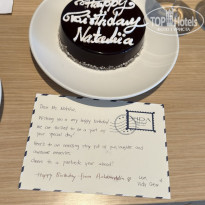 Happy
Birthday
Natalia
TOP HOTELS
Dear Ms. Natalia,
Wishing you a very happy birthday!
We are thrilled to be a part of
your special day!
VIDA
Here's to an amazing stay full of joy, laughter and
cherished memories.
Cheers to a fantastic year ahead!
- Happy Birthday from